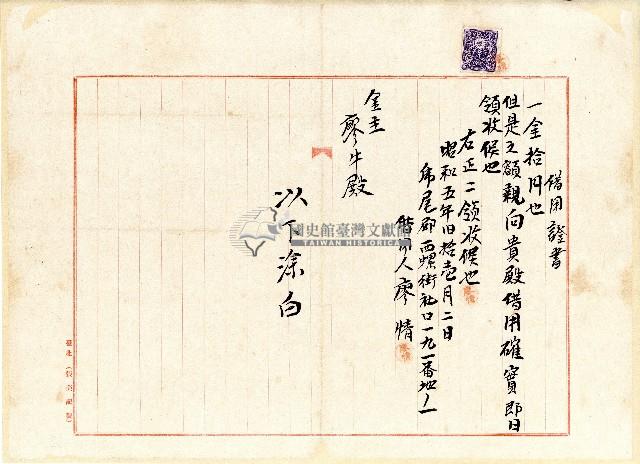 借用證書
一金拾円也
但是之額親向貴殿借用確實即日
領收候也
右正ニ領收候也
昭和五年旧拾壱月二日
虎尾郡西螺街社口一九一番地ノ一
借用人廖情
金主
廖牛殿
以下涂白
國史館臺灣文獻館
TAIWAN HISTORICA